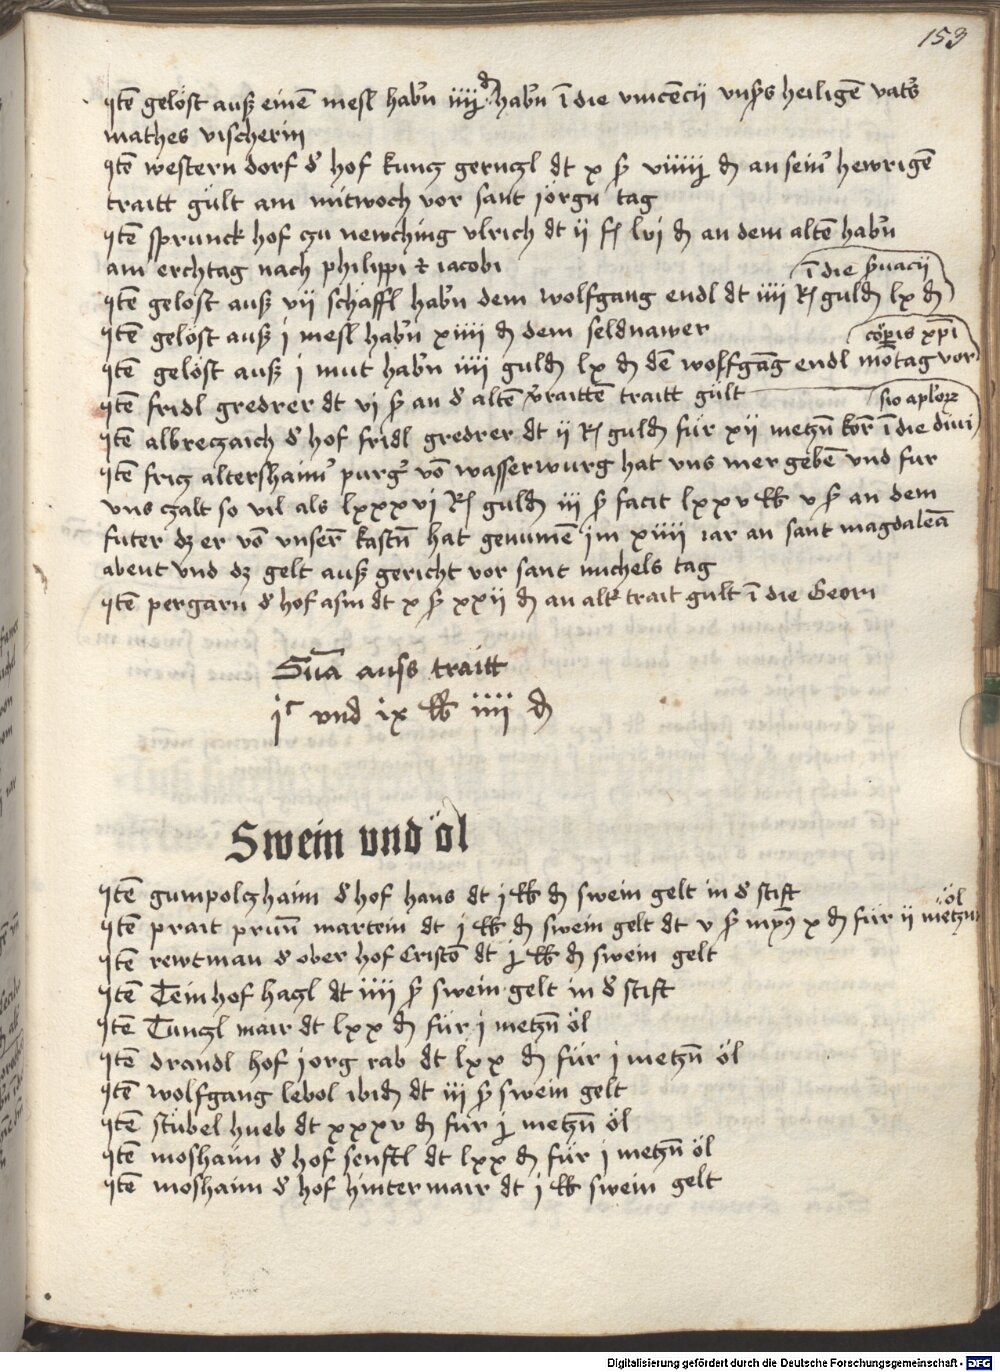 153
Itē gelöst auß einē mesl habrn iiij d habrn ī die vincēcij vnsers heiligē vaters
mathes vischerin
Itē western dorf d' hof kunz gernzl dt x ß viiij d an sein' hewrigē
traitt gült am mitwoch vor sant jörgn tag
Itē sprunck hof zu newching vlrich dt ij ß lvi d an dem altē habrn
am erchtag nach philippi et iacobi
ī die s'uacij
Itē gelöst auß vij schäffl habrn dem wolfgang endl dt iiij R guldn lx d
Itē gelöst auß i mesl habrn xiiij d dem seldnawer
corporis xpī
Itē gelöst auß j mut habrn iiij guldn lx d dē wolfgāg endl mōtag vor
Itē fridl gredrer dt vi ß an d' altē traitt gült
sio aplorum
Itē albrechaich d' hof fridl gredrer dt ij R guldn für xij metzn korn ī die diui
Itē fritz altershaim' purg' vō wasserwurg hat vns mer gebē vnd für
vns zalt so vil als lxxxvi R guldn iij ß facit lxxv lb v ß an dem
futer dz er vō vnserm kastn hat genumē im xiiij iar an sant magdalēa
abent vnd dz gelt auß gericht vor sant michels tag
Itē pergarn d' hof asm dt x ß xxij d an alt trait gult ī die Georī
Sūa auss traitt
jc vnd ix lb iiij d
Swein vnd öl
Itē gumpolzhaim d' hof hans dt j lb d swein gelt in d' stift
öl
Itē prait prūn martein dt j lb d swein gelt dt v ß x d für ij metzn
Itē rewtman d' ober hof cristō dt j lb d swein gelt
Itē Teinhof hagl dt iiij ß swein gelt in d' stift
Itē Tunzl mair dt lxx d für j metzn öl
Itē drandl hof jorg rab dt lxx d für j metzn öl
Itē wolfgang lebol ibidem dt iij ß swein gelt
Itē stübel hueb dt xxxv d für j metzn öl
Itē moshaim d' hof senftl dt lxx d für j metzn öl
Itē moshaim d' hof hintermair dt j lb swein gelt
Digitalisierung gefördert durch die Deutsche Forschungsgemeinschaft - DFG